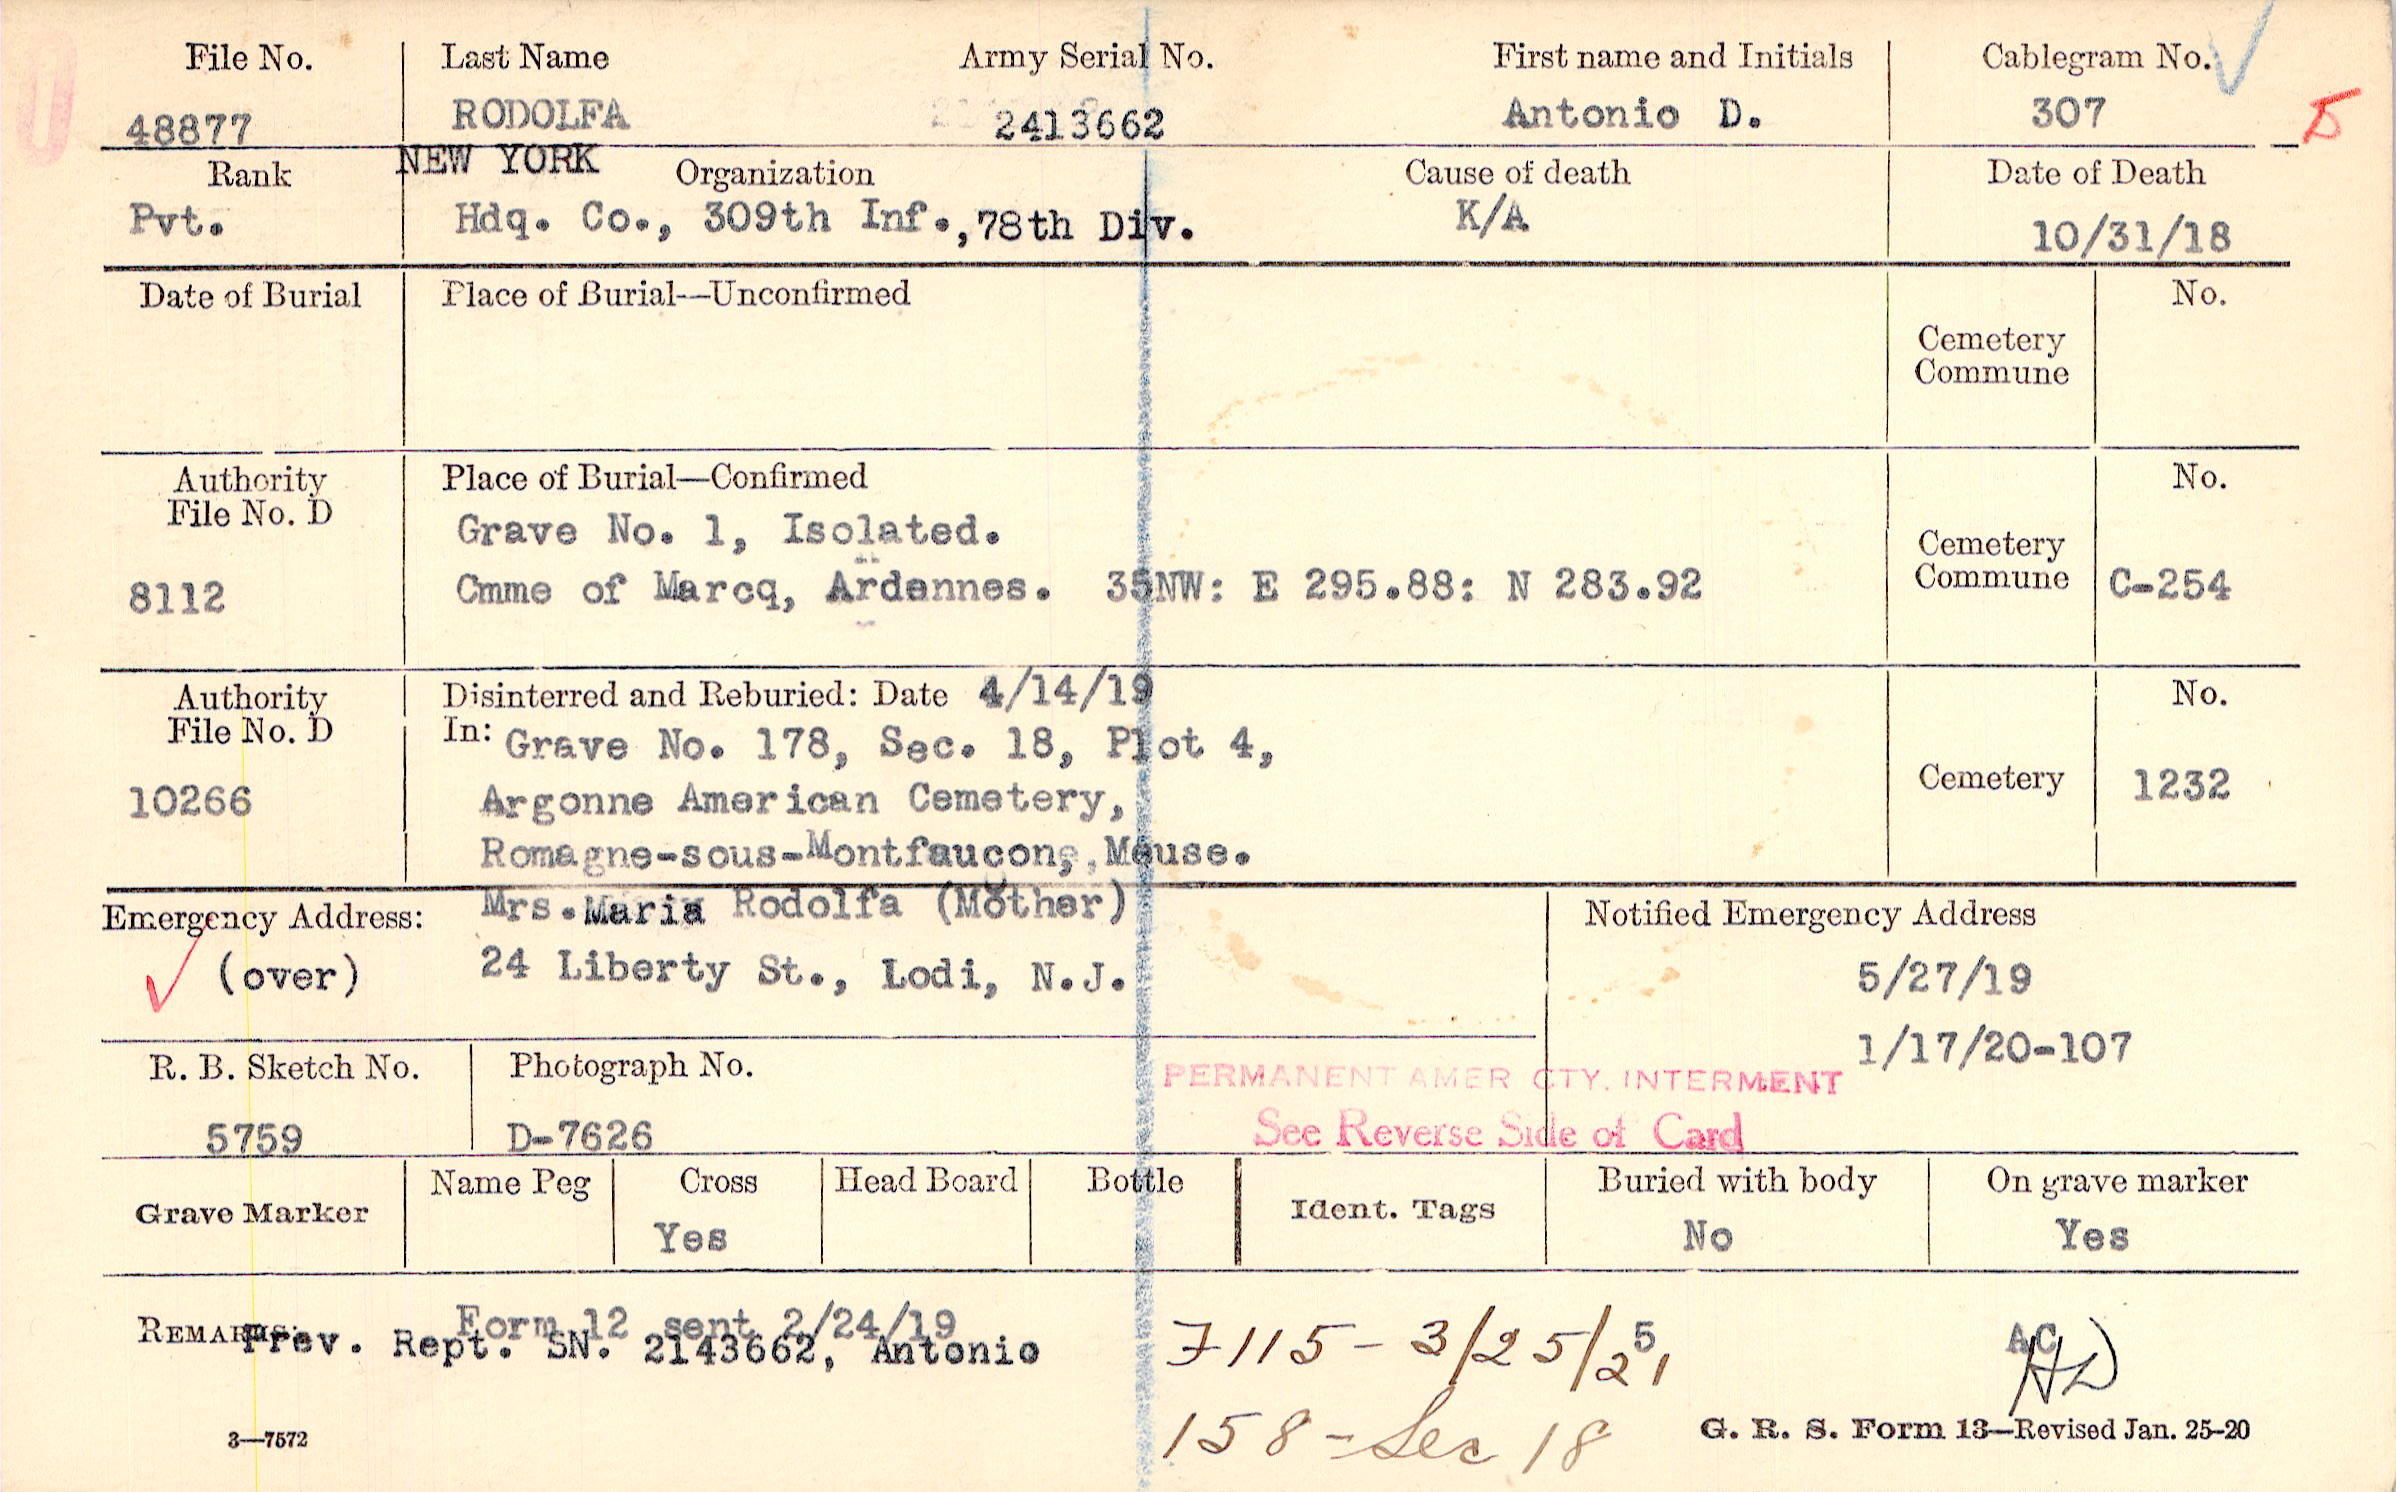 File No. Last Name Army Serial No. First name and Initials Cablegram No.
48877 RODOLFA 2413662 Antonio D. 307 5
NEW YORK
Rank Organization Cause of death Date of Death
Pvt. Hdq. Co., 309th Inf., 78th Div. K/A 10/31/18
Date of Burial Place of Burial—Unconfirmed No.
Cemetery
Commune
Authority Place of Burial—Confirmed No.
File No. D
Grave No. 1, Isolated.
Cemetery
8112 Cmme of Marcq, Ardennes. 35NW: E 295.88: N 283.92 Commune C-254
Authority Disinterred and Reburied: Date 4/14/19 No.
File No. D In: Grave No. 178, Sec. 18, Plot 4,
10266 Argonne American Cemetery, Cemetery 1232
Romagne-sous-Montfaucon, Meuse.
Emergency Address: Mrs. Maria Rodolfa (Mother) Notified Emergency Address
(over) 24 Liberty St., Lodi, N.J. 5/27/19
1/17/20-107
R. B. Sketch No. Photograph No. PERMANENT AMER CTY. INTERMENT
5759 D-7626 See Reverse Side of Card
Grave Marker Name Peg Cross Head Board Bottle Ident. Tags Buried with body On grave marker
Yes No Yes
REMARKS: Form 12 sent 2/24/19
Prev. Rept. SN. 2143662, Antonio 7115 - 3/25/21 5 AC
158 - Sec 18
3—7572 G. R. S. Form 13—Revised Jan. 25-20